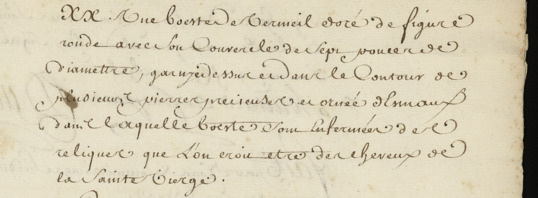 XX. Une boeste de Vermeil doré de figure
ronde avec son Couvercle de sept pouces de
Diamettre, garnye dessus et dans le Contour de
plusieurs pierres precieuses et ornée d'Esmaux
dans laquelle boeste sont Enfermées des
reliques que l'on croit etre des cheveux de
la Sainte Vierge.